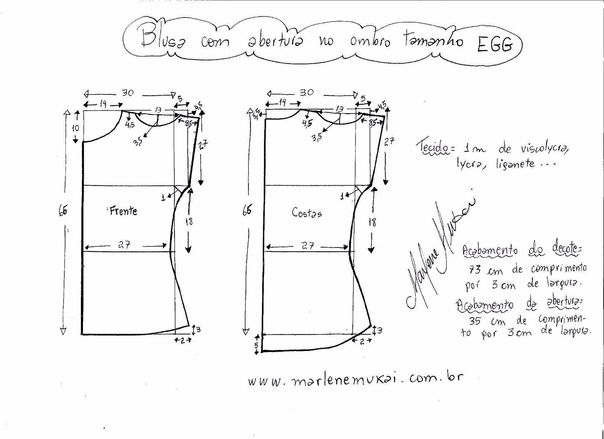 Blusa com abertura no ombro tamanho EGG
30
14
13
5
10
4,5
3,5
27
66
Frente
1
18
27
3
2
30
14
13
5
4,5
3,5
27
66
Costas
1
18
27
3
2
5
Tecido = 1 m de viscolycra,
lycra, liganete ...
Marlene Mukai
Acabamento do decote =
73 cm de comprimento
por 3 cm de largura.
Acabamento da abertura =
35 cm de comprimen-
to por 3 cm de largura.
www.marlenemukai.com.br